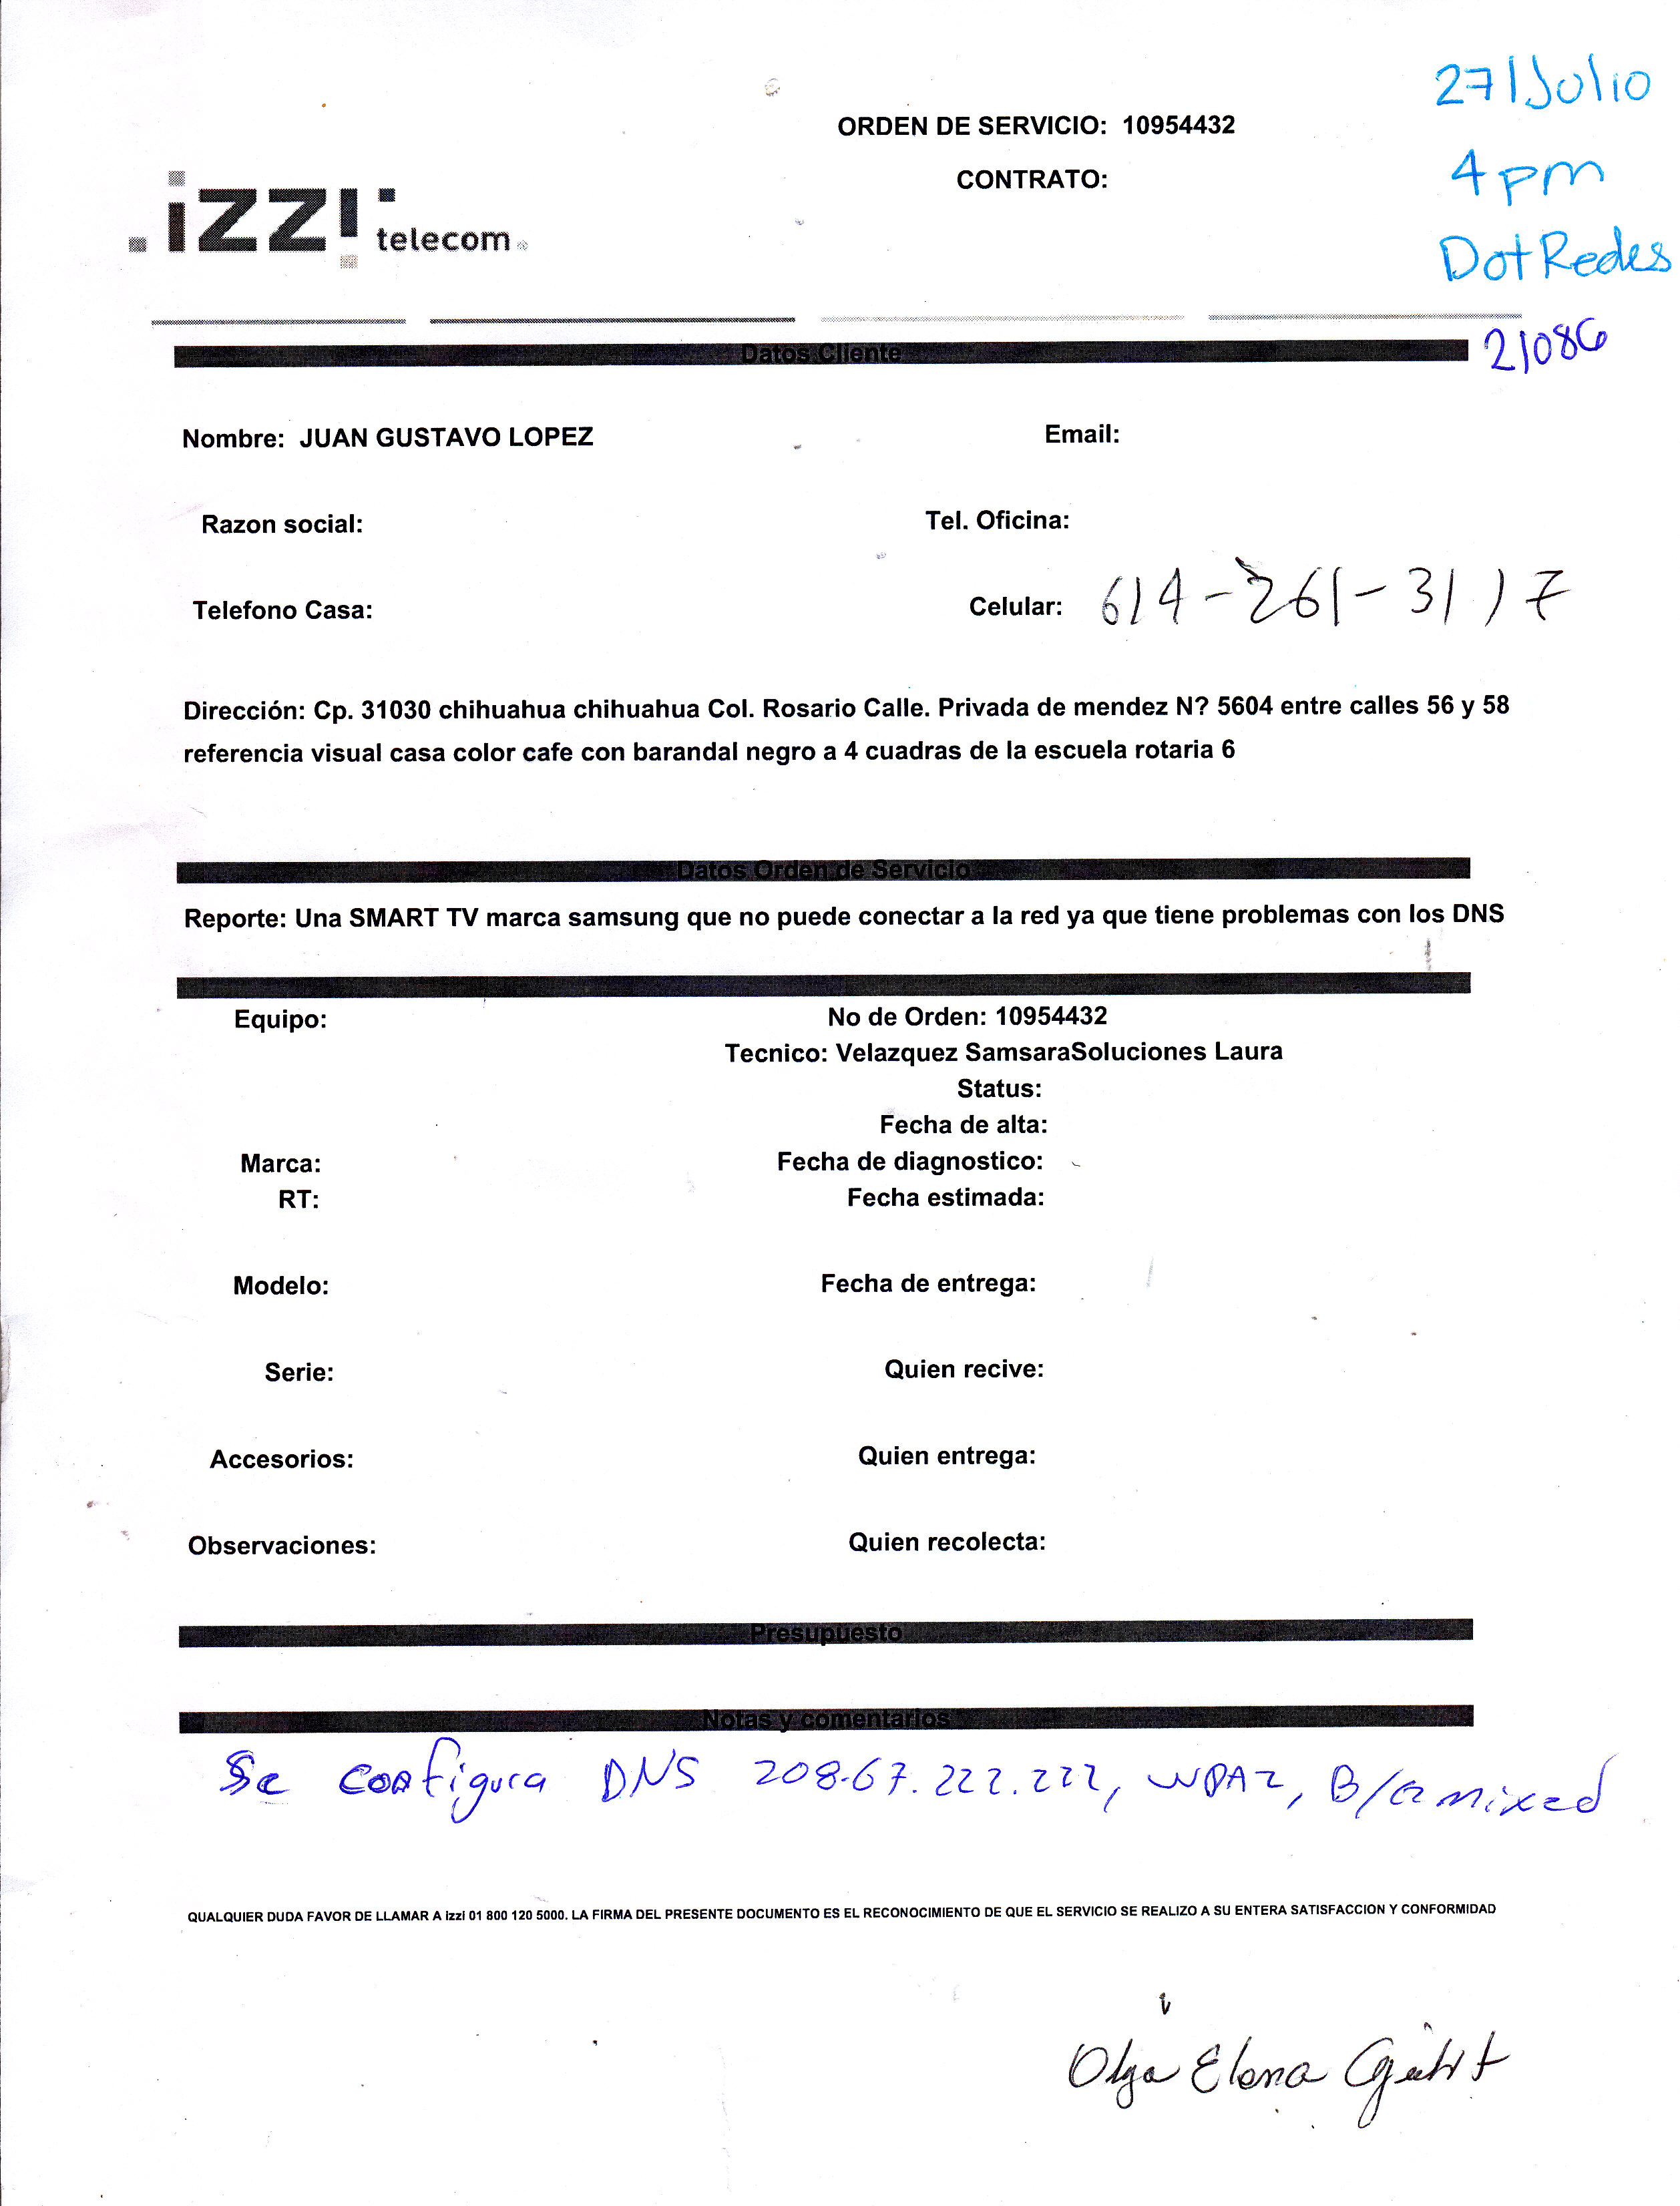 27/Julio
ORDEN DE SERVICIO: 10954432
4 pm
CONTRATO:
izzi telecom
Dot Redes
Datos Cliente
21086
Nombre: JUAN GUSTAVO LOPEZ
Email:
Razon social:
Tel. Oficina:
Telefono Casa:
Celular: 614-261-3117
Dirección: Cp. 31030 chihuahua chihuahua Col. Rosario Calle. Privada de mendez N? 5604 entre calles 56 y 58
referencia visual casa color cafe con barandal negro a 4 cuadras de la escuela rotaria 6
Datos Orden de Servicio
Reporte: Una SMART TV marca samsung que no puede conectar a la red ya que tiene problemas con los DNS
Equipo:
No de Orden: 10954432
Tecnico: Velazquez SamsaraSoluciones Laura
Status:
Fecha de alta:
Marca:
Fecha de diagnostico:
RT:
Fecha estimada:
Modelo:
Fecha de entrega:
Serie:
Quien recive:
Accesorios:
Quien entrega:
Observaciones:
Quien recolecta:
Presupuesto
Notas y comentarios
Se configura DNS 208.67.222.222, WPA2, B/G mixed
QUALQUIER DUDA FAVOR DE LLAMAR A izzi 01 800 120 5000. LA FIRMA DEL PRESENTE DOCUMENTO ES EL RECONOCIMIENTO DE QUE EL SERVICIO SE REALIZO A SU ENTERA SATISFACCION Y CONFORMIDAD
Olga Elena